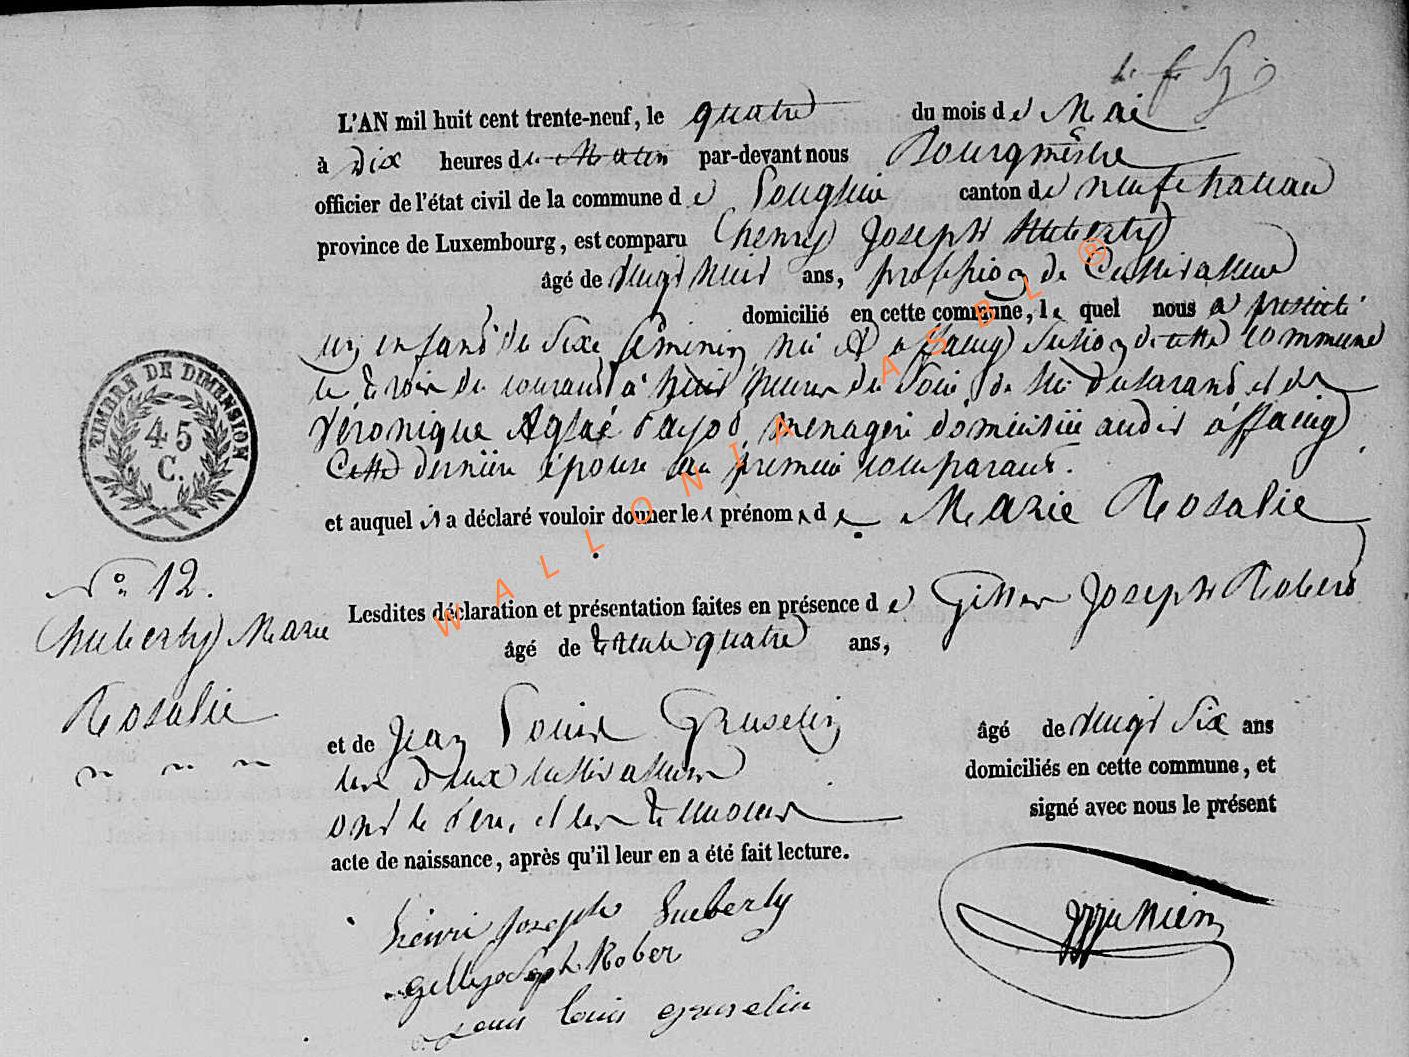 L'AN mil huit cent trente-neuf, le quatre du mois de Mai
à Dix heures du Matin par-devant nous Bourgmestre
officier de l'état civil de la commune de Longlier canton de neufchateau
province de Luxembourg, est comparu henry Joseph Huberty
âgé de vingt huit ans, profession de Cultivateur
domicilié en cette commune, le quel nous a presenté
un enfant du Sexe feminin né à offaing Section de cette commune
le trois du courant à huit heures du Soir, de lui declarant et de
Véronique Aglaé Payot ménagère domiciliée audit offaing
Cette dernière épouse au premier comparant.
et auquel il a déclaré vouloir donner les prénoms de Marie Rosalie
N° 12.
huberty Marie
Rosalie
Lesdites déclaration et présentation faites en présence de Gilles Joseph Robert
âgé de trente quatre ans,
et de Jean Louis Gruselin âgé de vingt Six ans
les deux cultivateurs domiciliés en cette commune, et
ont le Père, et les temoins signé avec nous le présent
acte de naissance, après qu'il leur en a été fait lecture.
henri Joseph huberty
gille joseph Rober
Jean louis gruselin
TIMBRE DE DIMENSION
45
C.
WALLONIA ASBL ®